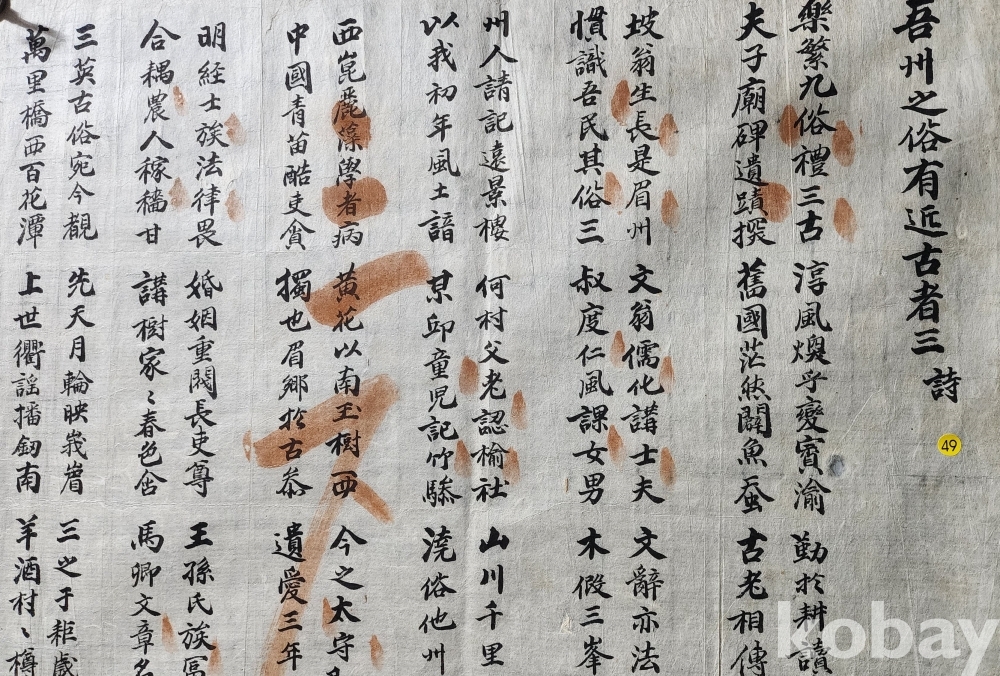 吾州之俗有近古者三 詩
樂繁九俗禮三古 淳風燠乎變賓渝 勤於耕讀
夫子廟碑遺蹟撰 舊國茫然闢魚蚕 古老相傳
坡翁生長是眉州 文翁儒化講士夫 文辭亦法
慣識吾民其俗三 叔度仁風課女男 木假三峯
州人請記遠景樓 何村父老認榆社 山川千里
以我初年風土諳 某邱童児記竹驂 澆俗他州
西崑麗藻學者病 黄花以南玉樹西 今之太守
中國青苗酷吏貪 獨也眉鄉於古恭 遺愛三年
明経士族法律畏 婚姻重閥長吏尊 王孫氏族冨
合耦農人稼穡甘 講樹家〻春色含 馬卿文章名
三英古俗宛今覩 先天月輪映峩眉 三之于耜歲
萬里橋西百花潭 上世衢謡播劒南 羊酒村〻樽
49
kobay